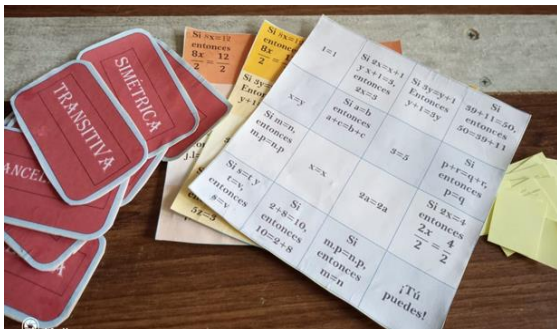 SIMÉTRICA
TRANSITIVA
ANCEL
Si 8x=12
entonces
8x/2 = 12/2
8x/2
Si 3y=
y+1
5z=5
1=1
Si 2x=x+1
y x+1=3,
entonces
2x=3
Si 3y=y+1
Entonces
y+1=3y
Si
39+11=50,
entonces
50=39+11
x=y
Si a=b
entonces
a+c=b+c
3=5
Si
p+r=q+r,
entonces
p=q
Si m=n,
entonces
m.p=n.p
x=x
2a=2a
Si 2x=4
entonces
2x/2 = 4/2
Si s=t y
t=v,
entonces
s=v
Si
2+8=10,
entonces
10=2+8
Si
m.p=n.p,
entonces
m=n
¡Tú
puedes!